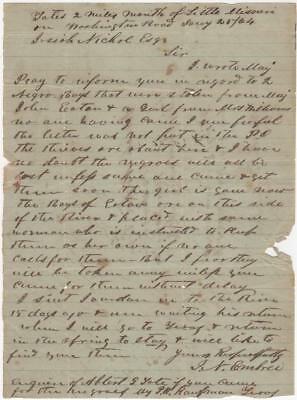 Gates 2 Miles Mouth of Little Missouri
on Washington Road Jany 28/64
Isiah Nichol Esqr
Sir
I wrote Maj
Pray to inform you in regard to the
Negro Boys that were stolen from Maj
John Eaton & a Girl from Mrs Williams
no one having came I was fearful
the letter was not put in the P.O
the thieves are still here & I have
no doubt the negroes will all be
lost unless some one came & get
them soon the girl is gone now
the Boys of Eatons are on this side
of the River & placed with some
woman who is instructed to keep
them as her own if no one
calls for them But I fear they
will be taken away unless you
came for them without delay
I sent to the River
15 days ago & am waiting his return
when I will go to Texas & return
in the spring to stay & will like to
find you then
Yours Respectfully
N. Embree
enquire of Gate if you came
for the negroes by Kaufman Texas